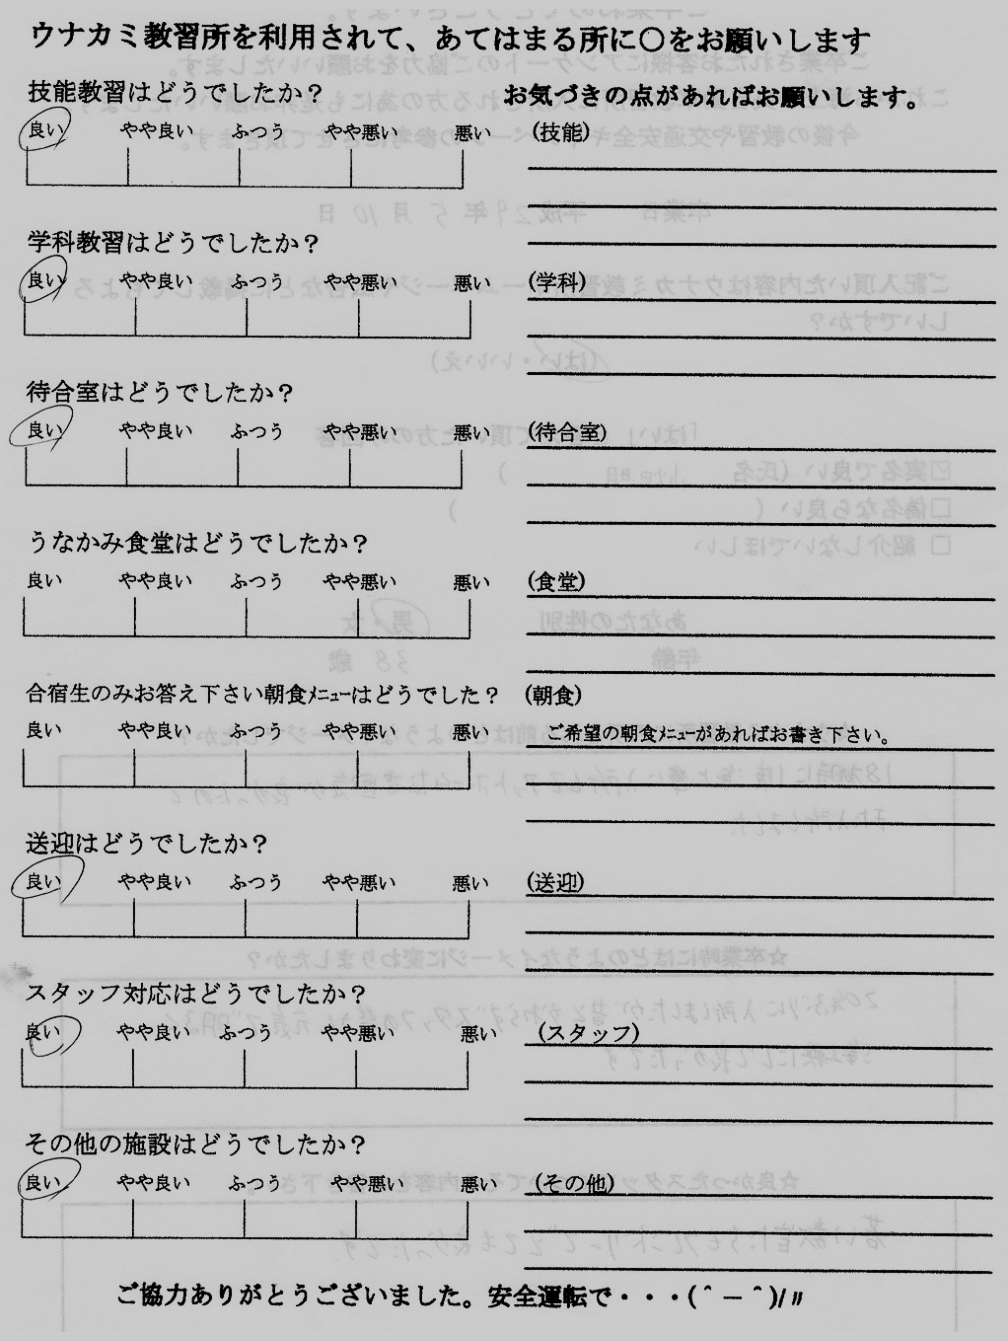 ウナカミ教習所を利用されて、あてはまる所に○をお願いします
技能教習はどうでしたか？
お気づきの点があればお願いします。
良い やや良い ふつう やや悪い 悪い (技能)
学科教習はどうでしたか？
良い やや良い ふつう やや悪い 悪い (学科)
待合室はどうでしたか？
良い やや良い ふつう やや悪い 悪い (待合室)
うなかみ食堂はどうでしたか？
良い やや良い ふつう やや悪い 悪い (食堂)
合宿生のみお答え下さい朝食ﾒﾆｭｰはどうでした？ (朝食)
良い やや良い ふつう やや悪い 悪い ご希望の朝食ﾒﾆｭｰがあればお書き下さい。
送迎はどうでしたか？
良い やや良い ふつう やや悪い 悪い (送迎)
スタッフ対応はどうでしたか？
良い やや良い ふつう やや悪い 悪い (スタッフ)
その他の施設はどうでしたか？
良い やや良い ふつう やや悪い 悪い (その他)
ご協力ありがとうございました。安全運転で・・・(＾－＾)/〃